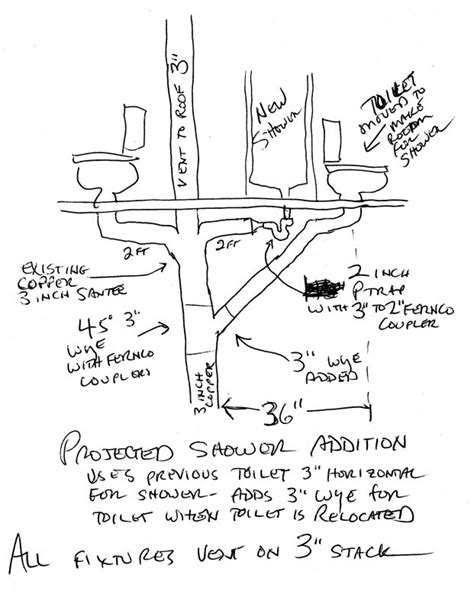 VENT TO ROOF 3"
NEW
SHOWER
TOILET
MOVED TO
MAKE
ROOM
FOR
SHOWER
2FT
2FT
EXISTING
COPPER
3 INCH SANTEE
2 INCH
P TRAP
WITH 3" TO 2" FERNCO
COUPLER
45° 3"
WYE
WITH FERNCO
COUPLERS
3" WYE
ADDED
3 INCH
COPPER
36"
PROJECTED SHOWER ADDITION
USES PREVIOUS TOILET 3" HORIZONTAL
FOR SHOWER - ADDS 3" WYE FOR
TOILET WHEN TOILET IS RELOCATED
ALL FIXTURES VENT ON 3" STACK